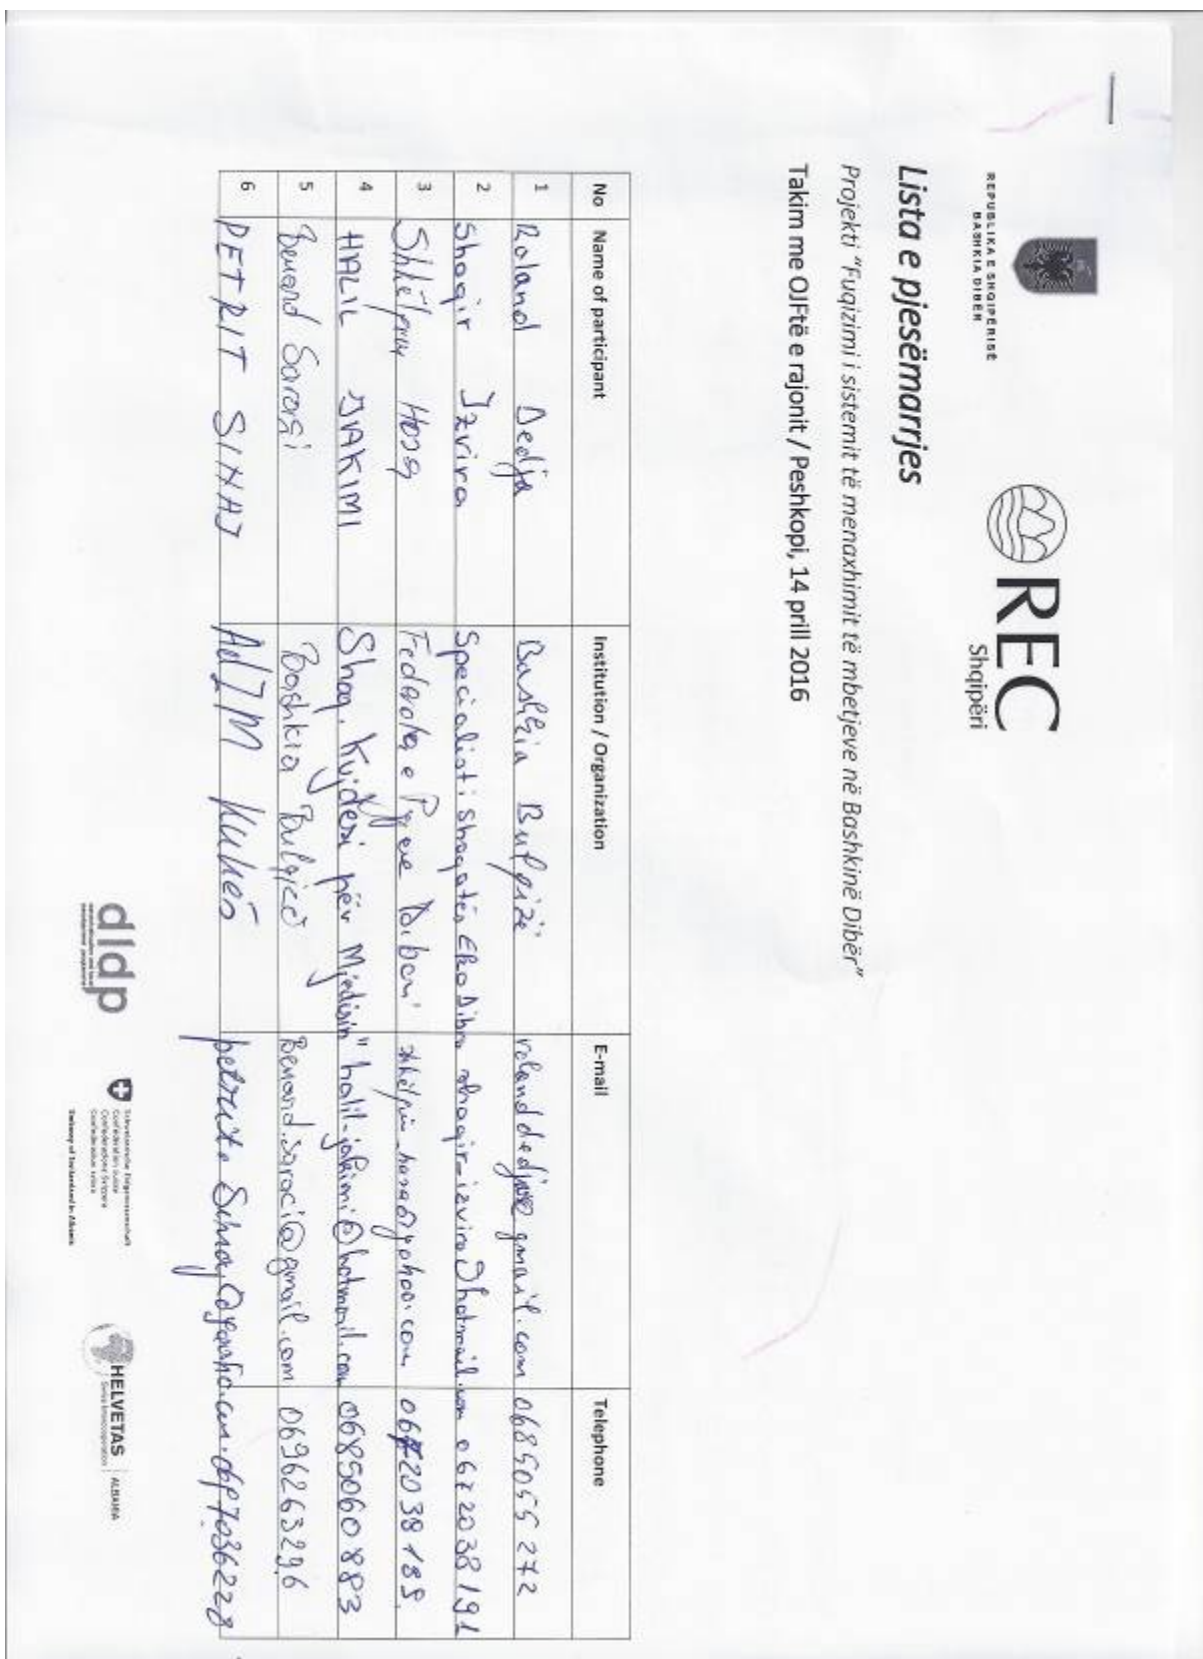 REPUBLIKA E SHQIPËRISË
BASHKIA DIBËR
REC
Shqipëri
Lista e pjesëmarrjes
Projekti “Fuqizimi i sistemit të menaxhimit të mbetjeve në Bashkinë Dibër”
Takim me OJFtë e rajonit / Peshkopi, 14 prill 2016
No Name of participant Institution / Organization E-mail Telephone
1 Roland Dedja Bashkia Bulqizë gmail.com 0685055272
2 Shaqir Izvira Specialist i Shoqatës Eko Dibra shaqir-izvira@hotmail.com 0672038191
3 Hosa Federata e Pyjeve Dibër 0672038189
4 HALIL JAKIMI Shoq. Kujdesi për Mjedisin" halil-jakimi@hotmail.com 0685060883
5 Benard Saraçi Bashkia Bulqizë Benard.saraci@gmail.com 0696263296
6 PETRIT SINAJ Kukës
dldp
decentralisation and local
development programme
Schweizerische Eidgenossenschaft
Confédération suisse
Confederazione Svizzera
Confederaziun svizra
Embassy of Switzerland in Albania
HELVETAS ALBANIA
Swiss Intercooperation